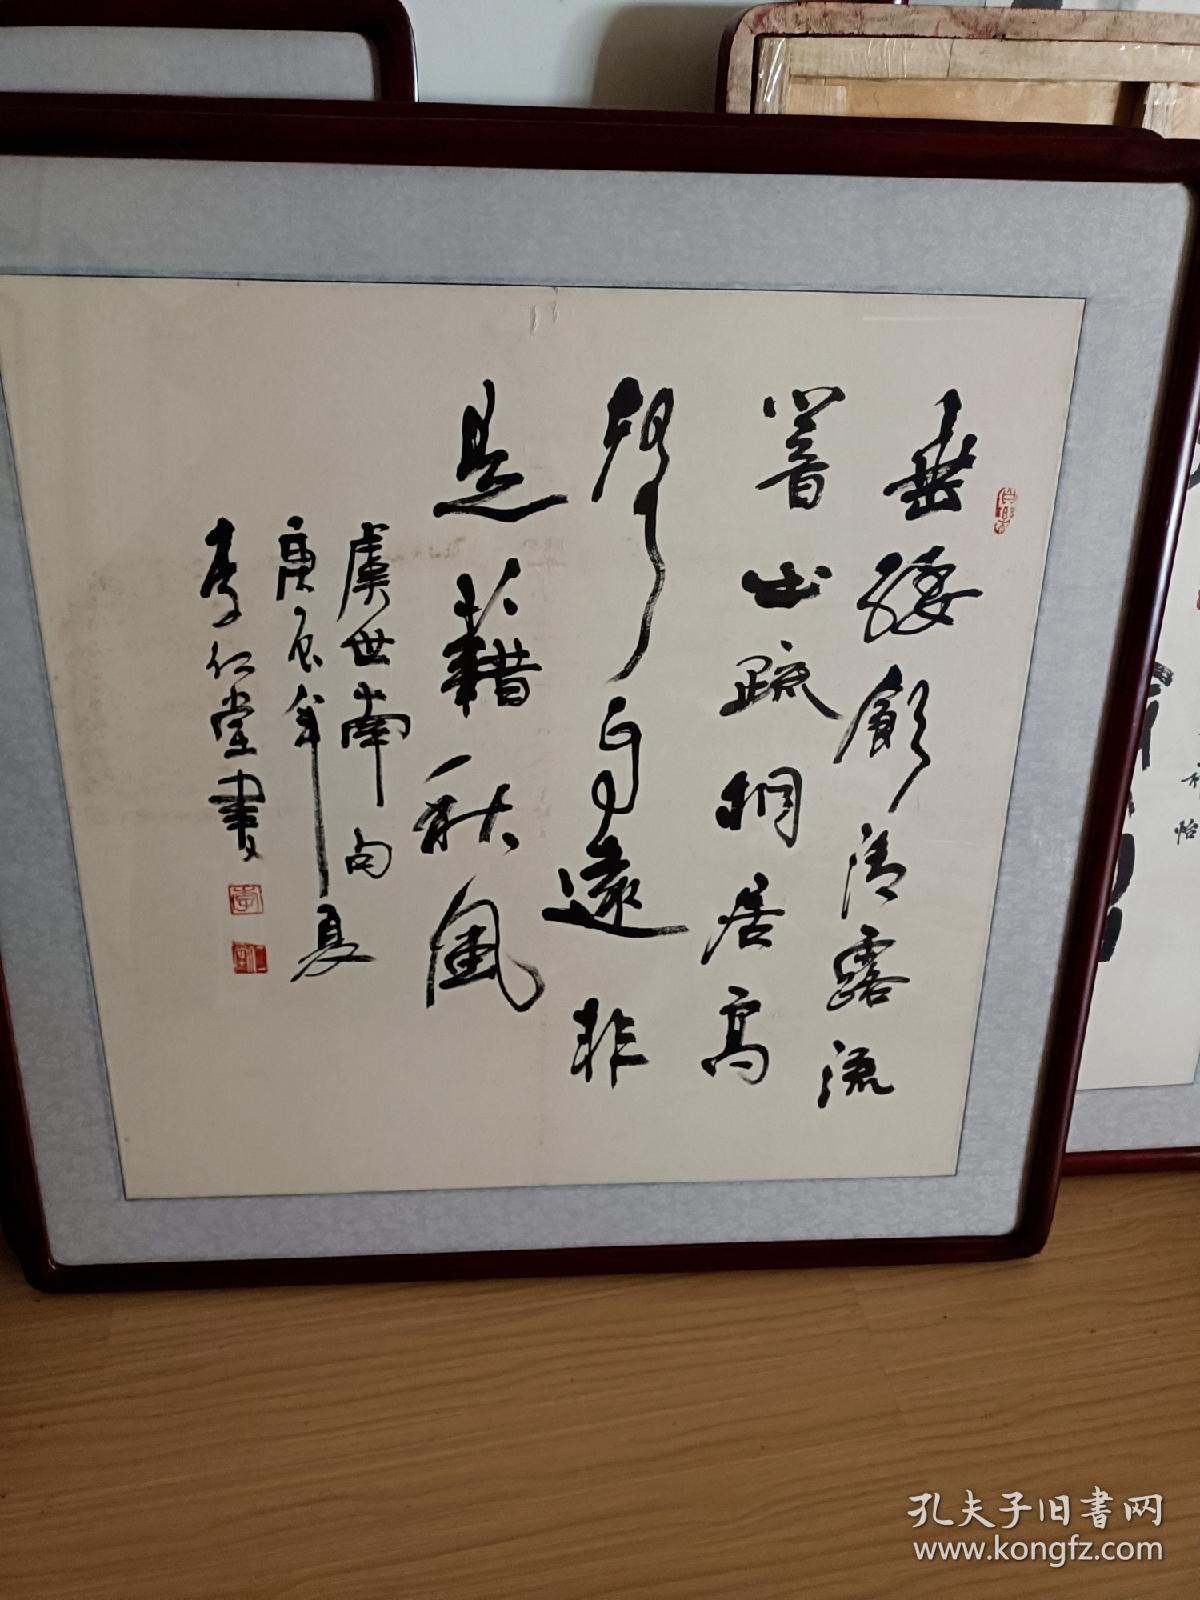 垂緌飲清露流
響出疏桐居高
聲自遠非
是藉秋風
虞世南句
庚辰年夏
李仁堂書
孔夫子旧书网
www.kongfz.com